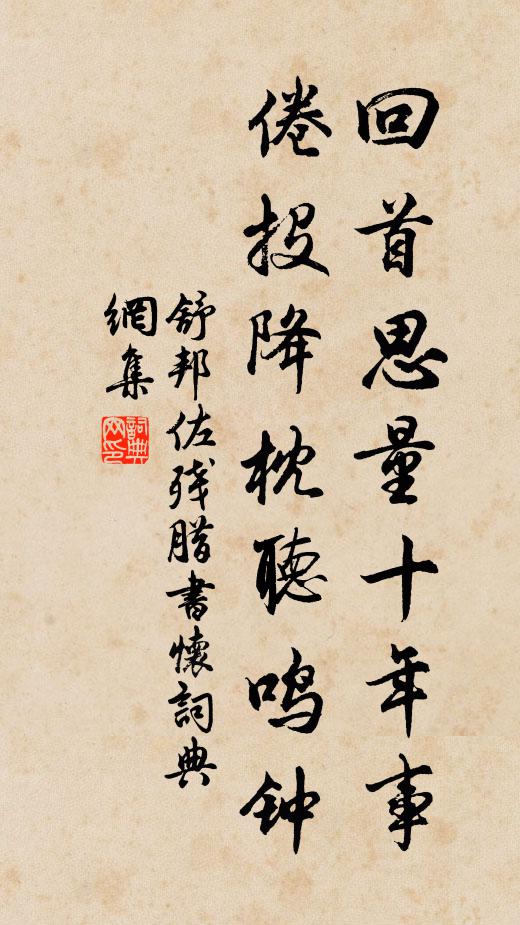 回首思量十年事
倦投降枕聽鸣钟
舒邦佐残腊書懷詞典
網集
詞典
网印